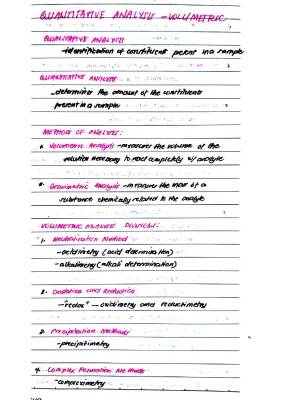 QUANTITATIVE ANALYSIS - VOLUMETRIC
QUALITATIVE ANALYSIS
-identification of constituent present in a sample
QUANTITATIVE ANALYSIS
-determine the amount of the constituent
present in a sample
METHODS OF ANALYSIS:
Volumetric Analysis - measure the volume of the
solution necessary to react completely w/ analyte
Gravimetric Analysis - measure the mass of a
substance chemically related to the analyte
VOLUMETRIC ANALYSIS DIVISIONS:
1. Neutralization Method
-acidimetry (acid determination)
-alkalimetry (alkali determination)
2. Oxidation and Reduction
-"redox" - oxidimetry and reductimetry
3. Precipitation Methods
-precipitimetry
4. Complex Formation Methods
-compleximetry